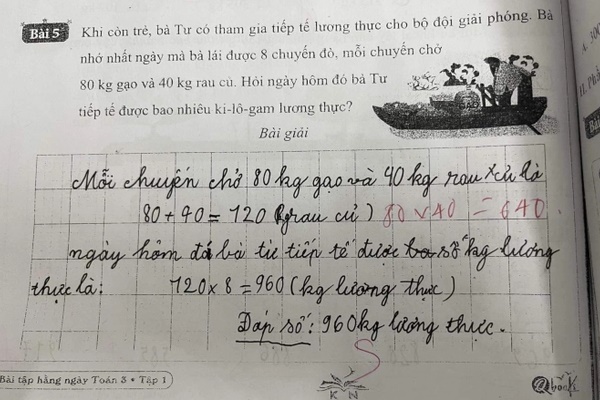 Bài 5
Khi còn trẻ, bà Tư có tham gia tiếp tế lương thực cho bộ đội giải phóng. Bà
nhớ nhất ngày mà bà lái được 8 chuyến đò, mỗi chuyến chở
80 kg gạo và 40 kg rau củ. Hỏi ngày hôm đó bà Tư
tiếp tế được bao nhiêu ki-lô-gam lương thực?
Bài giải
Mỗi chuyến chở 80 kg gạo và 40 kg rau củ là
80 + 40 = 120 (kg rau củ) 80 x 40 = 640
ngày hôm đó bà tư tiếp tế được số kg lương
thực là: 120 x 8 = 960 (kg lương thực)
Đáp số: 960kg lương thực.
S
Bài tập hằng ngày Toán 3 • Tập 1
K N